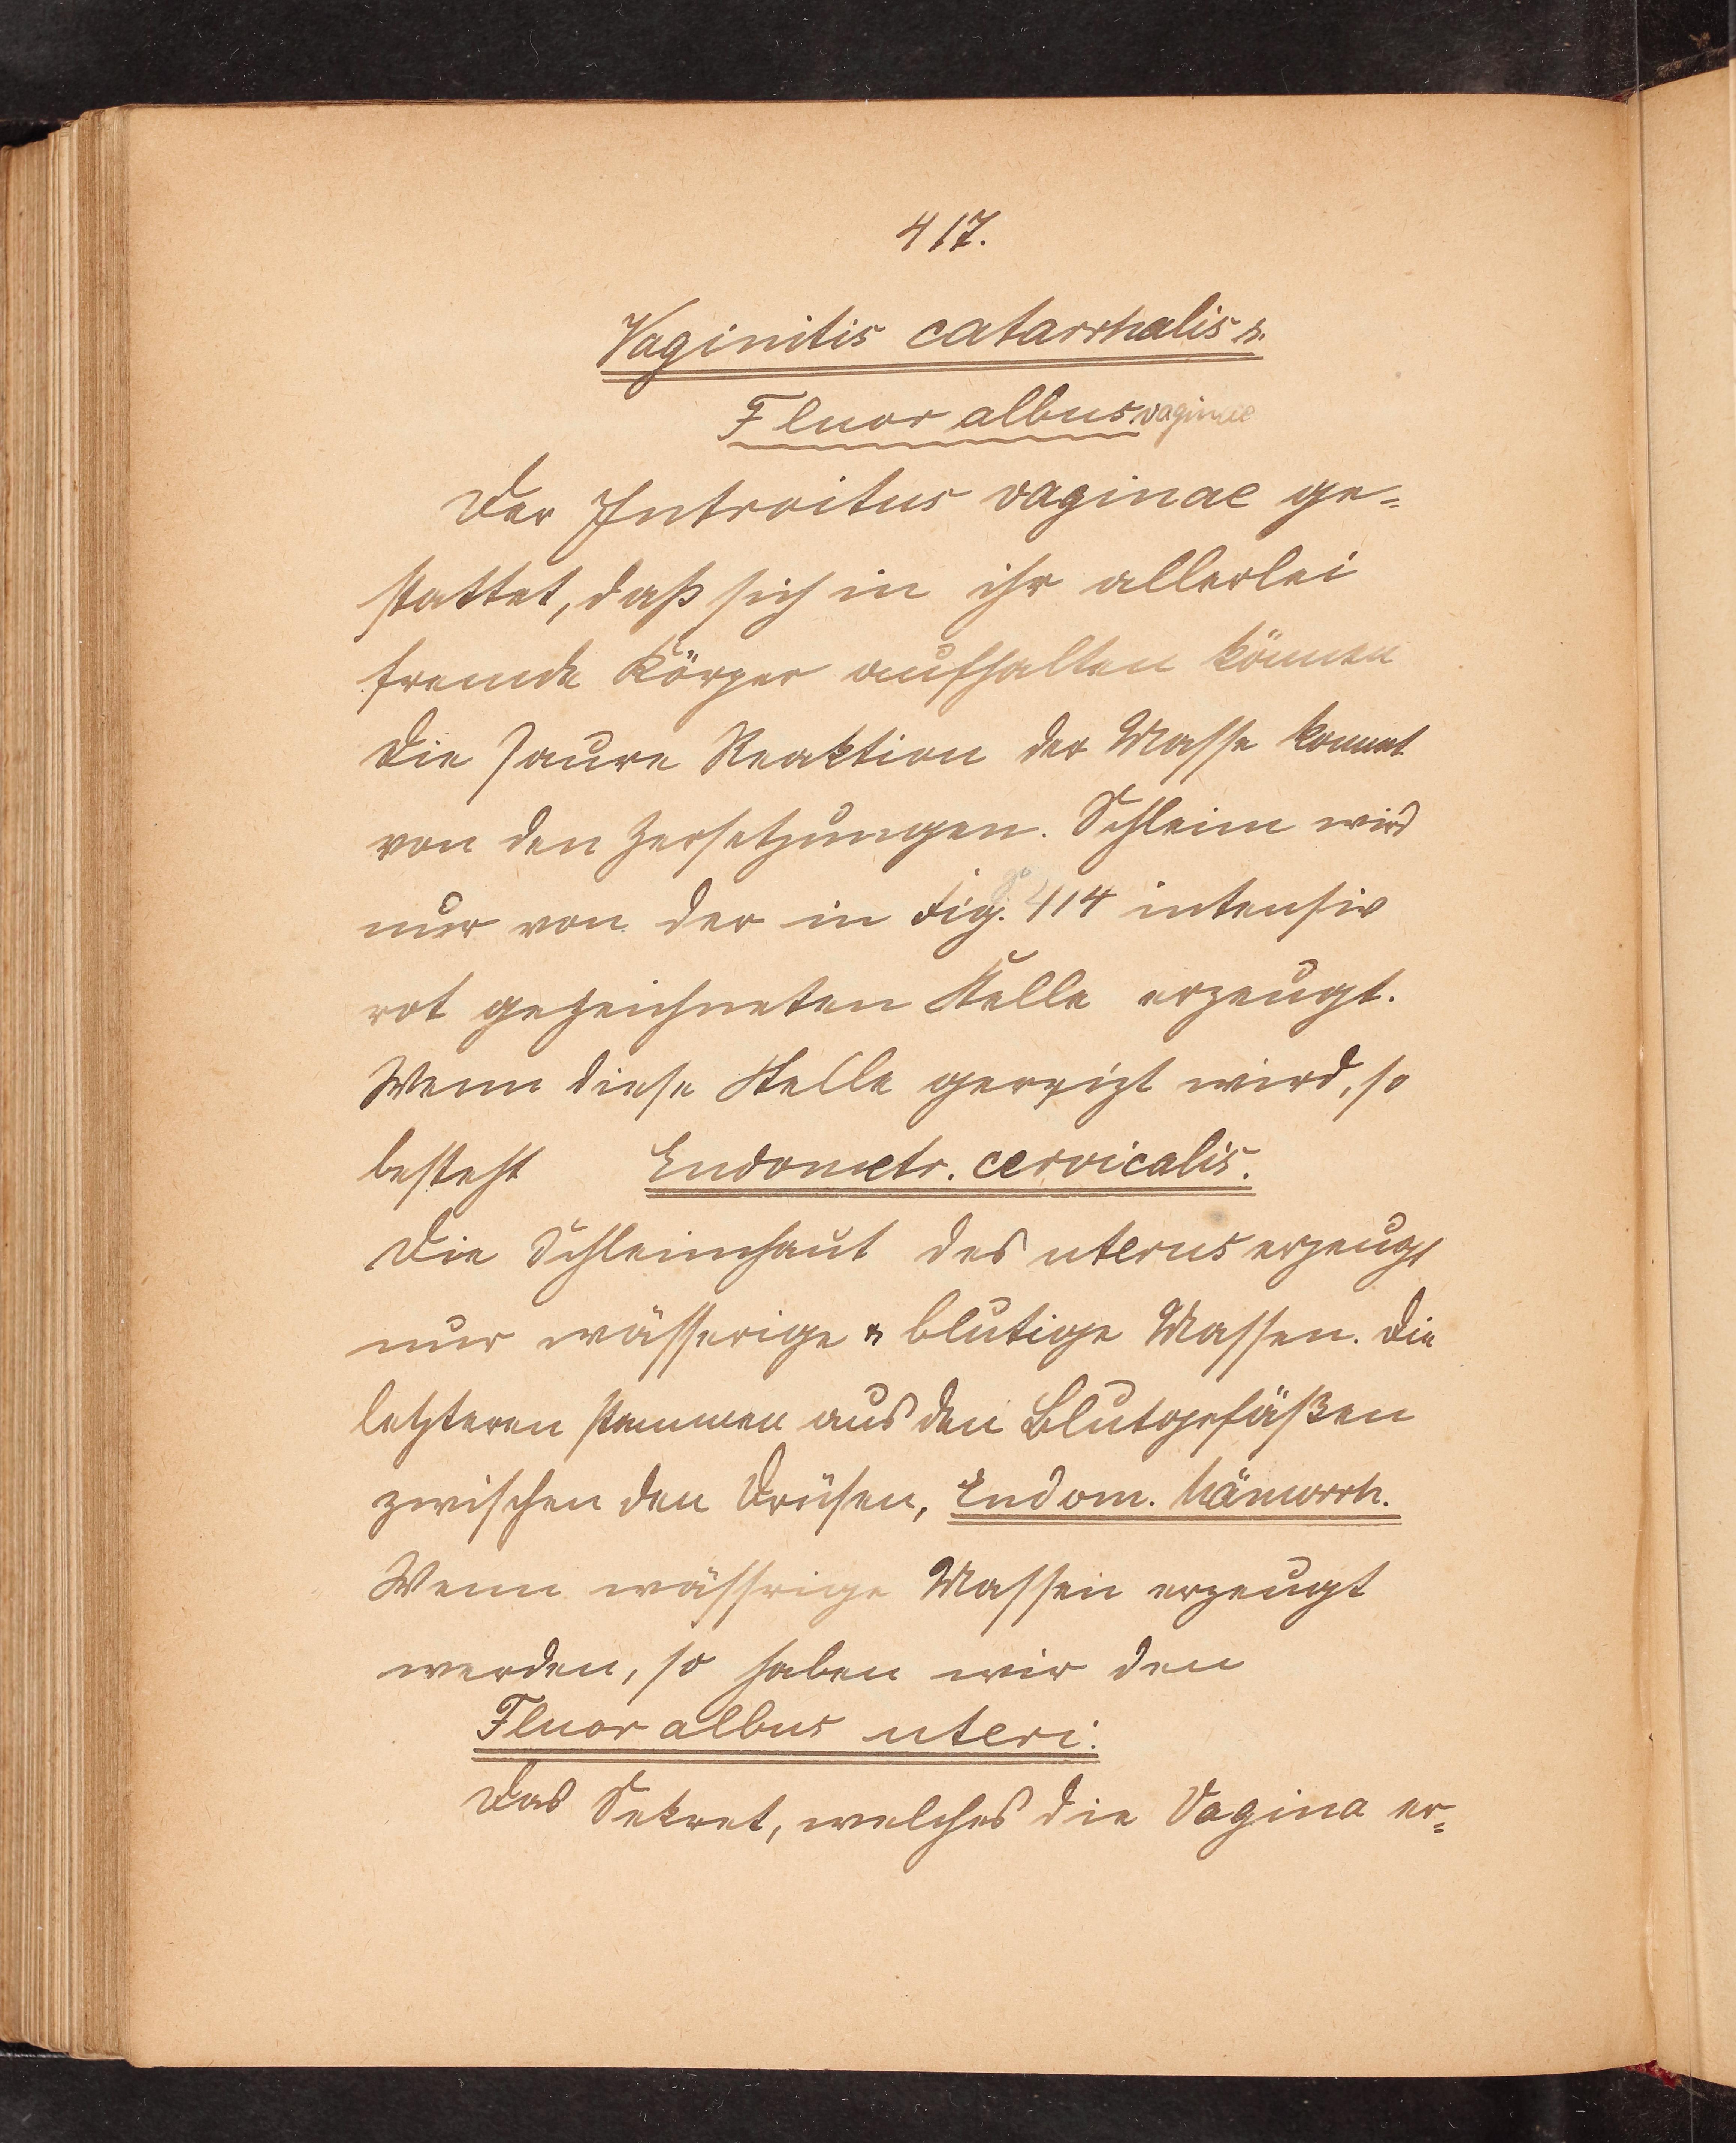 417.
Vaginitis catarrhalis u.
Fluor albus vaginae
Der Introitus vaginae ge-
stattet, daß sich in ihr allerlei
fremde Körper aufhalten können
Die saure Reaktion der Masse kommt
von den Zersetzungen. Schleim wird
nur von der in Fig. 414 intensiv
rot gezeichneten Stelle erzeugt.
Wenn diese Stelle gereizt wird, so
besteht Endometr. cervicalis.
Die Schleimhaut des uterus erzeugt
nur wässerige & blutige Massen. Die
letzteren stammen aus den Blutgefäßen
zwischen den Drüsen, Endom. hämorrh.
Wenn wässrige Massen erzeugt
werden, so haben wir den
Fluor albus uteri:
Das Sekret, welches die Vagina er-